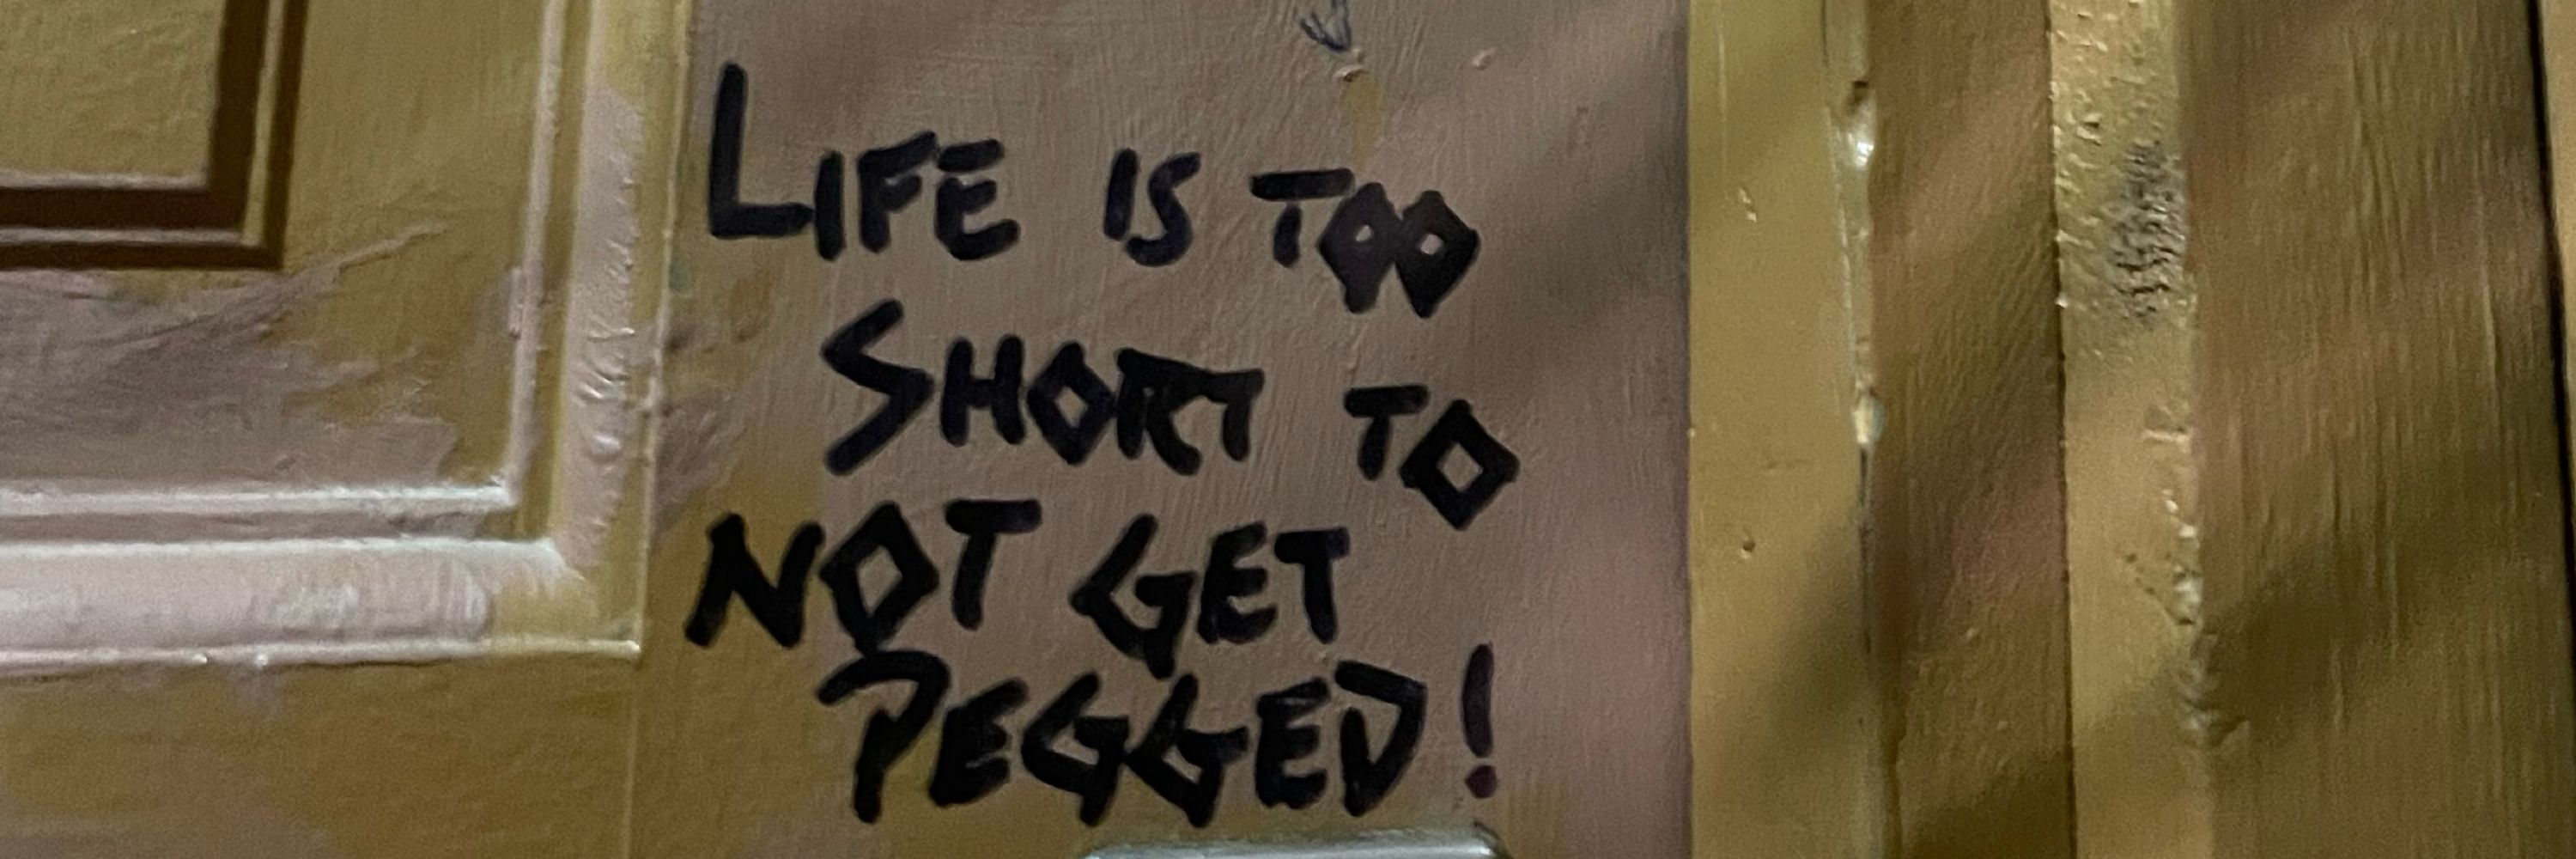 LIFE IS TOO
SHORT TO
NOT GET
PEGGED!